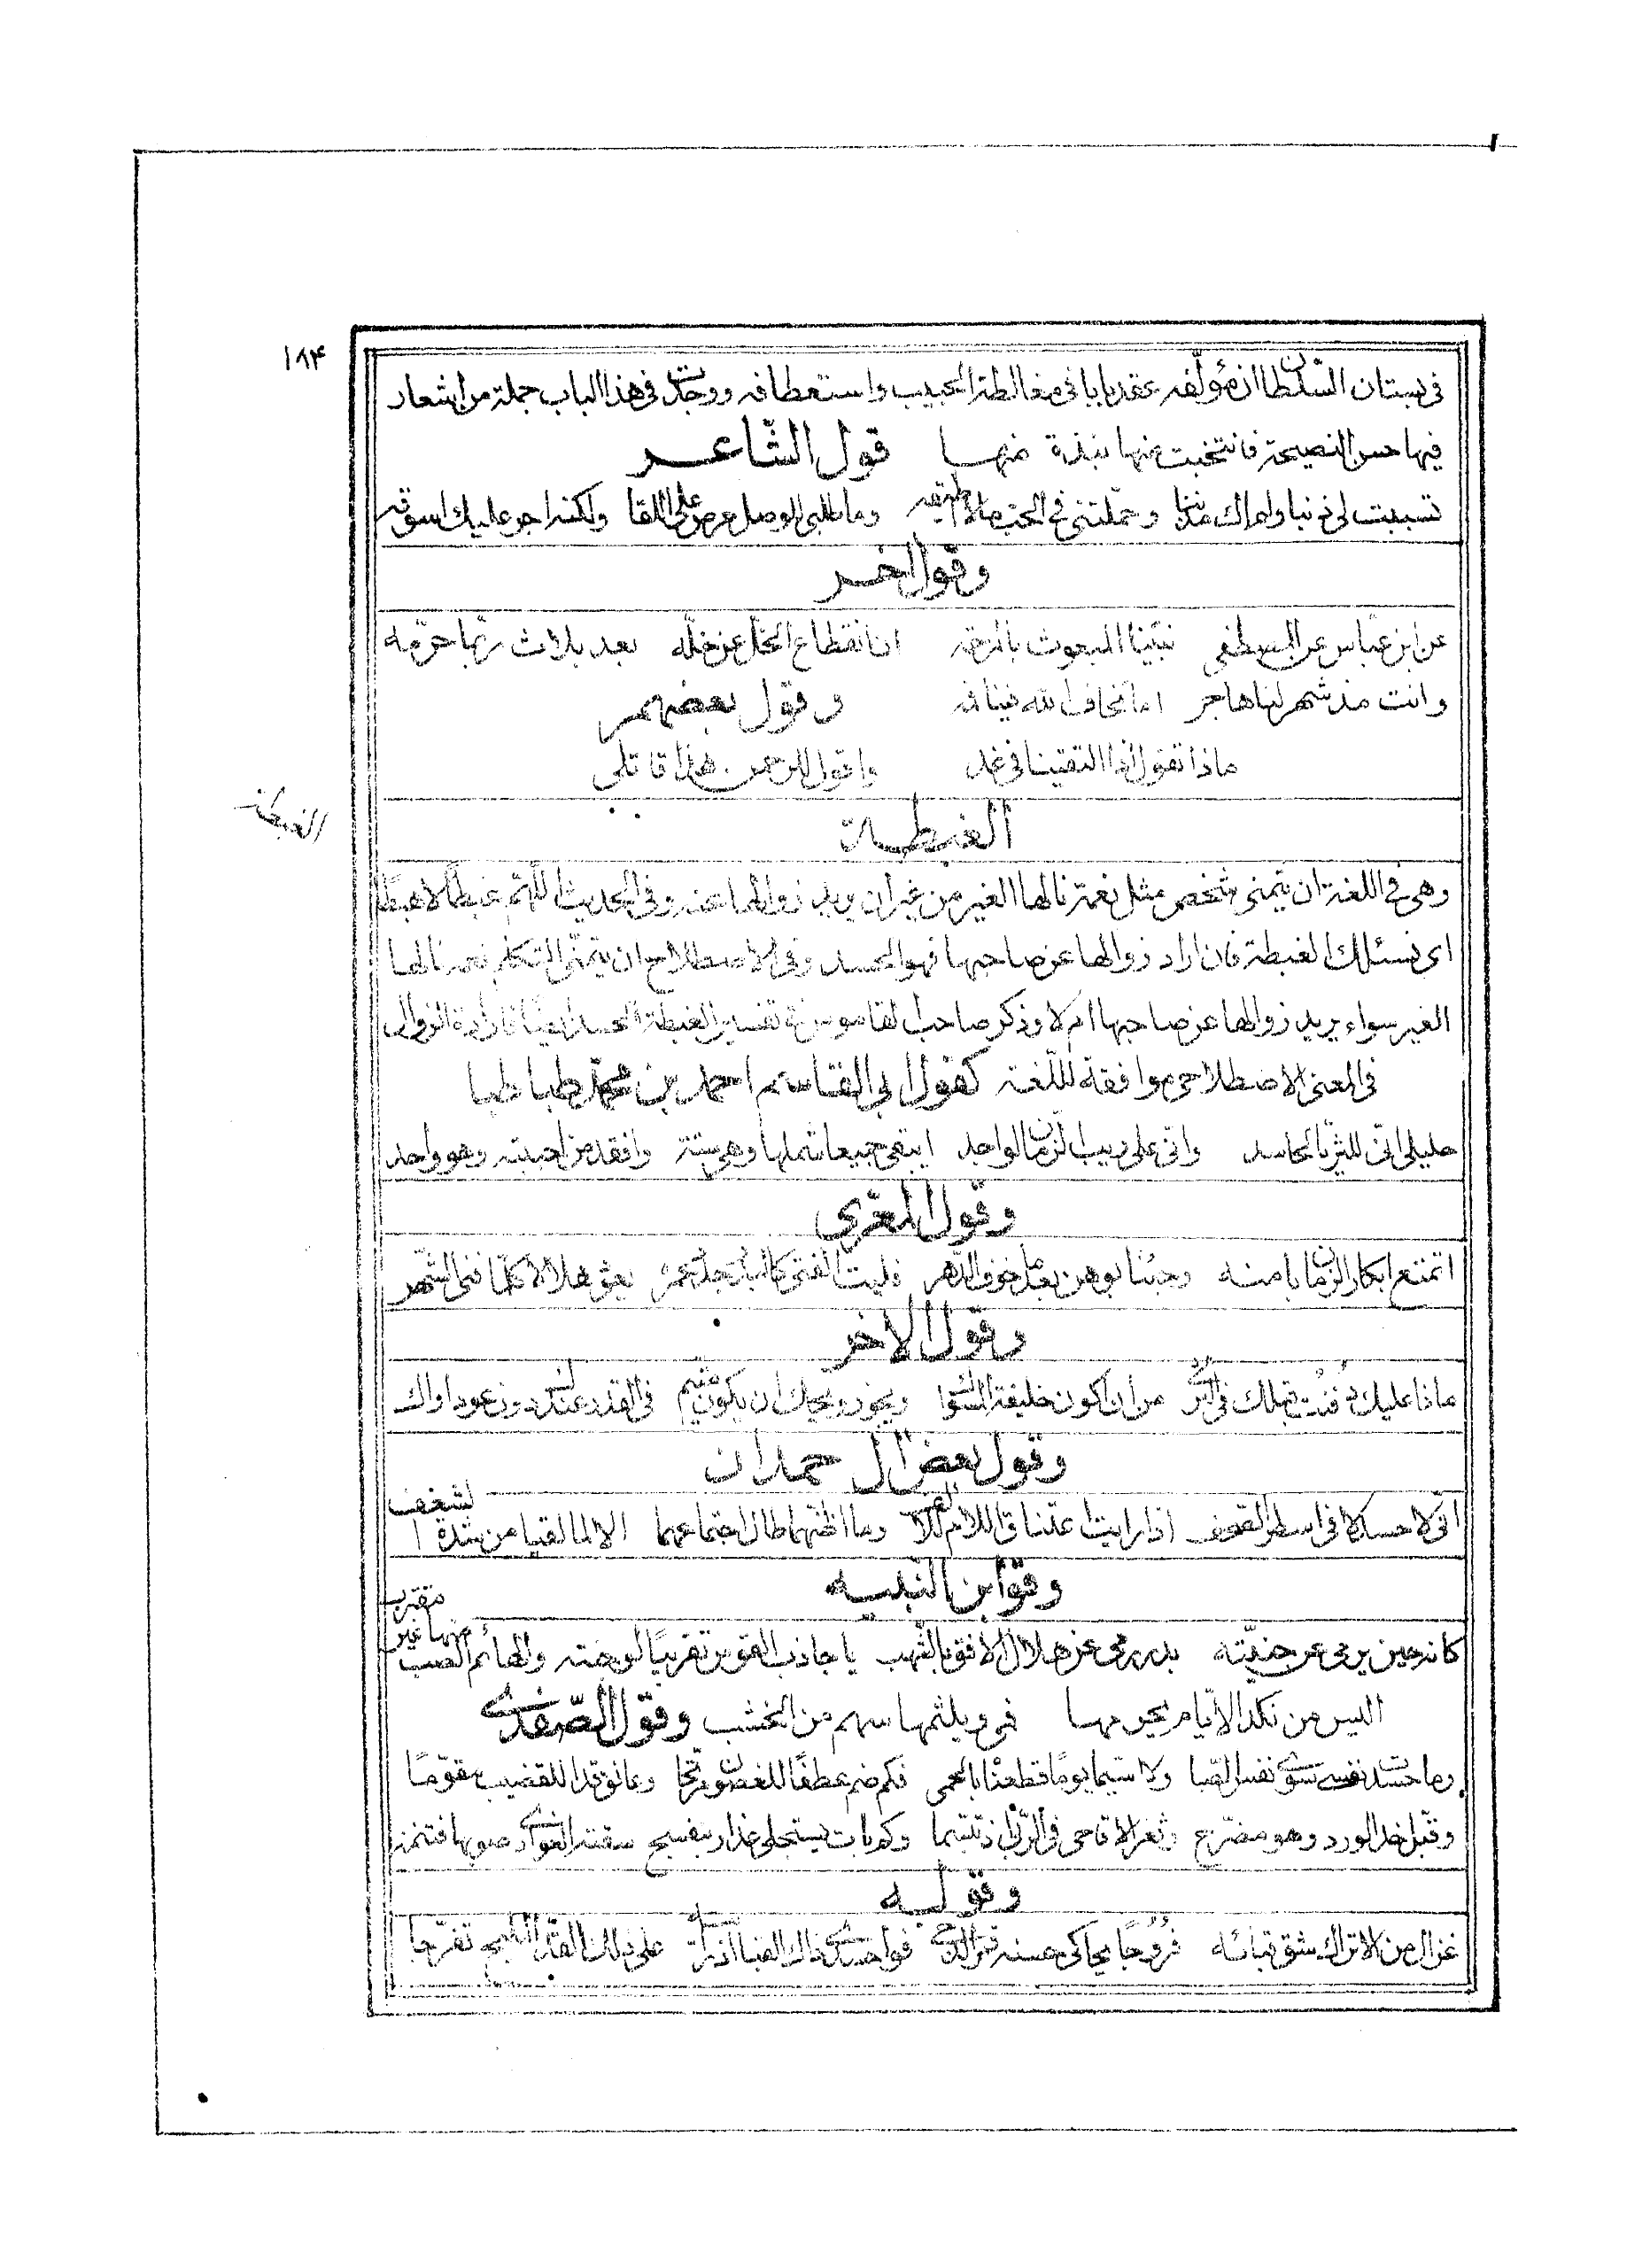 ١٨۴
فى بستان السّلطان ان مؤلّفه عقد بابا فى مغالطة الحبيب واستعطافه ووجدت فى هذا الباب جملة من اشعار
فيها حسن النصيحة فانتخبت منها نبذة منها قول الشّاعر
تسببت لى ذنبا ولم اك مذنبا وحمّلتنى فى الحب ما لا اطيقه وما طلبى للوصل حرص على اللقا ولكنه اجر عليك اسوقه
وقول اخر
عن ابن عبّاس عن المصطفى نبيّنا المبعوث بالرحمه ان انقطاع الخلّ عن خلّه بعد ثلاث ربّنا حرّمه
وانت مذ شهر لنا هاجر اما تخاف الله فينا مه وقول بعضهم
ماذا تقول اذا التقينا فى غد واقول للرحمن هذا قاتلى
الغبطة
الغبطة
وهى فى اللغة ان يتمنى شخص مثل نعمة نالها الغير من غير ان يريد زوالها عنه وفى الحديث اللّهمّ غبطًا لا هبطًا
اى نسئلك الغبطة فان اراد زوالها عن صاحبها فهو الحسد وفى الاصطلاح ان يتمنّى المتكلم نعمة نالها
الغير سواء يريد زوالها عن صاحبها ام لا وذكر صاحب القاموس فى تفسير الغبطة الحسد ايضًا فارادة الزوال
فى المعنى الاصطلاحى موافقة للّغة كقول ابى القاسم احمد بن محمّد طباطبا
خليلى انّى للثريّا لحاسد وانّى على ريب الزمان لواجد ايبقى جميعا شملها وهى ستة وافقد من احببته وهو واحد
وقول المعرّى
تمتع ابكار الزمان بايده وجئنا بوهن بعد ما خرف الدّهر فليت الفتى كالبدر جدّد عمره يعود هلالا كلّما فنى الشّهر
وقول الاخر
ماذا عليك دفنت قبلك فى الثرى من ان اكون خليفة
وقول بعض ال حمدان
انّى لاحسد لا فى اسطر الصّحف اذا رايت اعتناق اللام للالف وما اظنّهما طال اجتماعهما الا لما لقيا من شدة الشغف
وقول ابن النّبيه
كانه حين يرمى عن حنيّته بدر رمى عن هلال الافق بالشّهب يا جاذب القوس تقريبًا لوجنته والهائم الصب منها غير مقترب
اليس من نكد الايّام يحرمها فمى ويلثمها سهم من الخشب وقول الصّفدى
وما حسدت نفسى سوى نفس الصّبا ولا سيّما يومًا قطعناه بالحمى فكم ضم عطفًا للغصون مرنّحا وعانق قدا للقضيب مقوّمًا
وقبّل خد الورد وهو مضرّج وثغر الاقاحى فى الرّبى اذ تبسّما وكم بات يستجلى عذار بنفسج سقته الغوادى صوبها
وقوله
غزال من الاتراك شق قبائه فُرُوجًا يحاكى حسنه قمر الدجى فواحسدى ذاك القبا على ذلك القدّ المليح تفرّجا